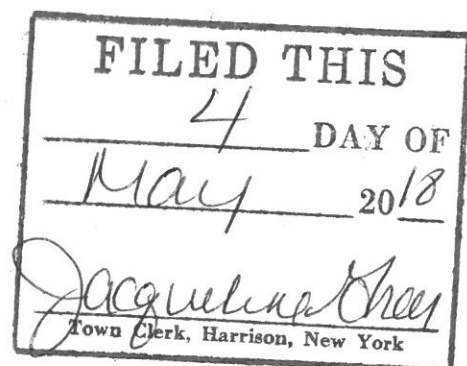 FILED THIS
4 DAY OF
May 2018
Jacqueline Greer
Town Clerk, Harrison, New York